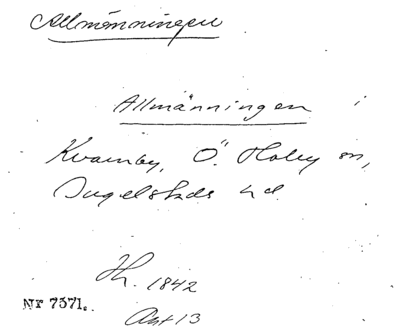 Allmänningen
Allmänningen i
Kvarnby, Ö. Hoby sn,
Ingelstads hd.
1842
Nr 7571.
Akt 13